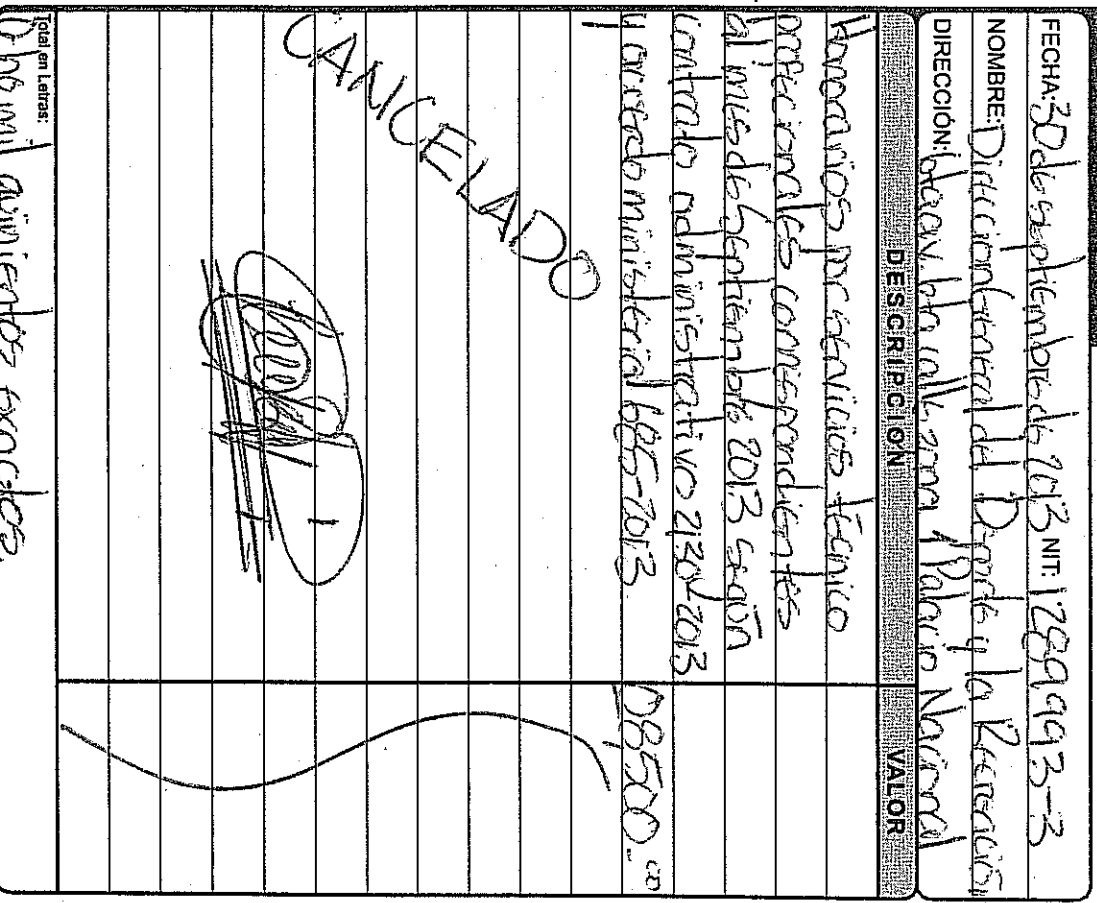 FECHA: 30 de septiembre de 2013 NIT: 1289993-3
NOMBRE: Direccion General del Deporte y la Recreación
DIRECCIÓN: 6ta av. 6ta calle zona 1 Palacio Nacional
DESCRIPCIÓN VALOR
Honorarios por servicios técnico
profecionales correspondientes
al mes de Septiembre 2013 según
contrato administrativo 2130-2013
y acuerdo ministerial 685-2013. Q8500.-00
CANCELADO
Total en Letras:
Ocho mil quinientos exactos